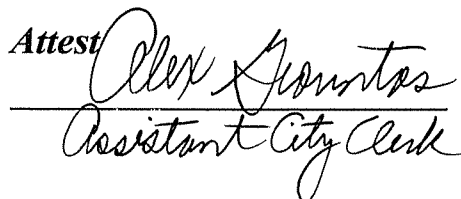 Attest Alex Grountas
Assistant City Clerk